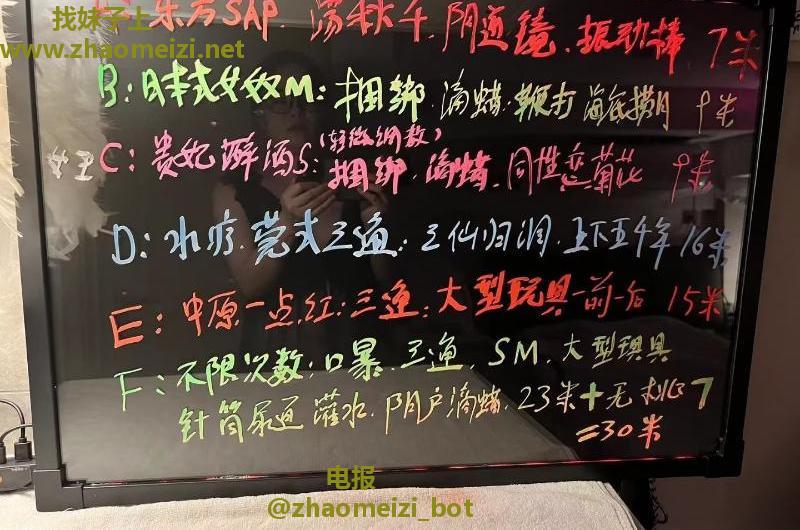 找妹子上
www.zhaomeizi.net
东方SAP, 荡秋千, 阴道镜, 振动棒, 7米
B: 日本式女奴M: 捆绑, 滴蜡, 鞭打 海底捞月 9米
C: 贵妃醉酒S: (轻微调教) 捆绑, 滴蜡, 同性恋菊花 9米
D: 水疗, 莞式三通: 三仙归洞, 上下五千年 16米
E: 中原一点红: 三通, 大型玩具一前一后 15米
F: 不限次数: 口暴, 三通, SM, 大型玩具
针筒尿道灌水, 阴户滴蜡, 23米+无 7
=30米
电报
@zhaomeizi_bot